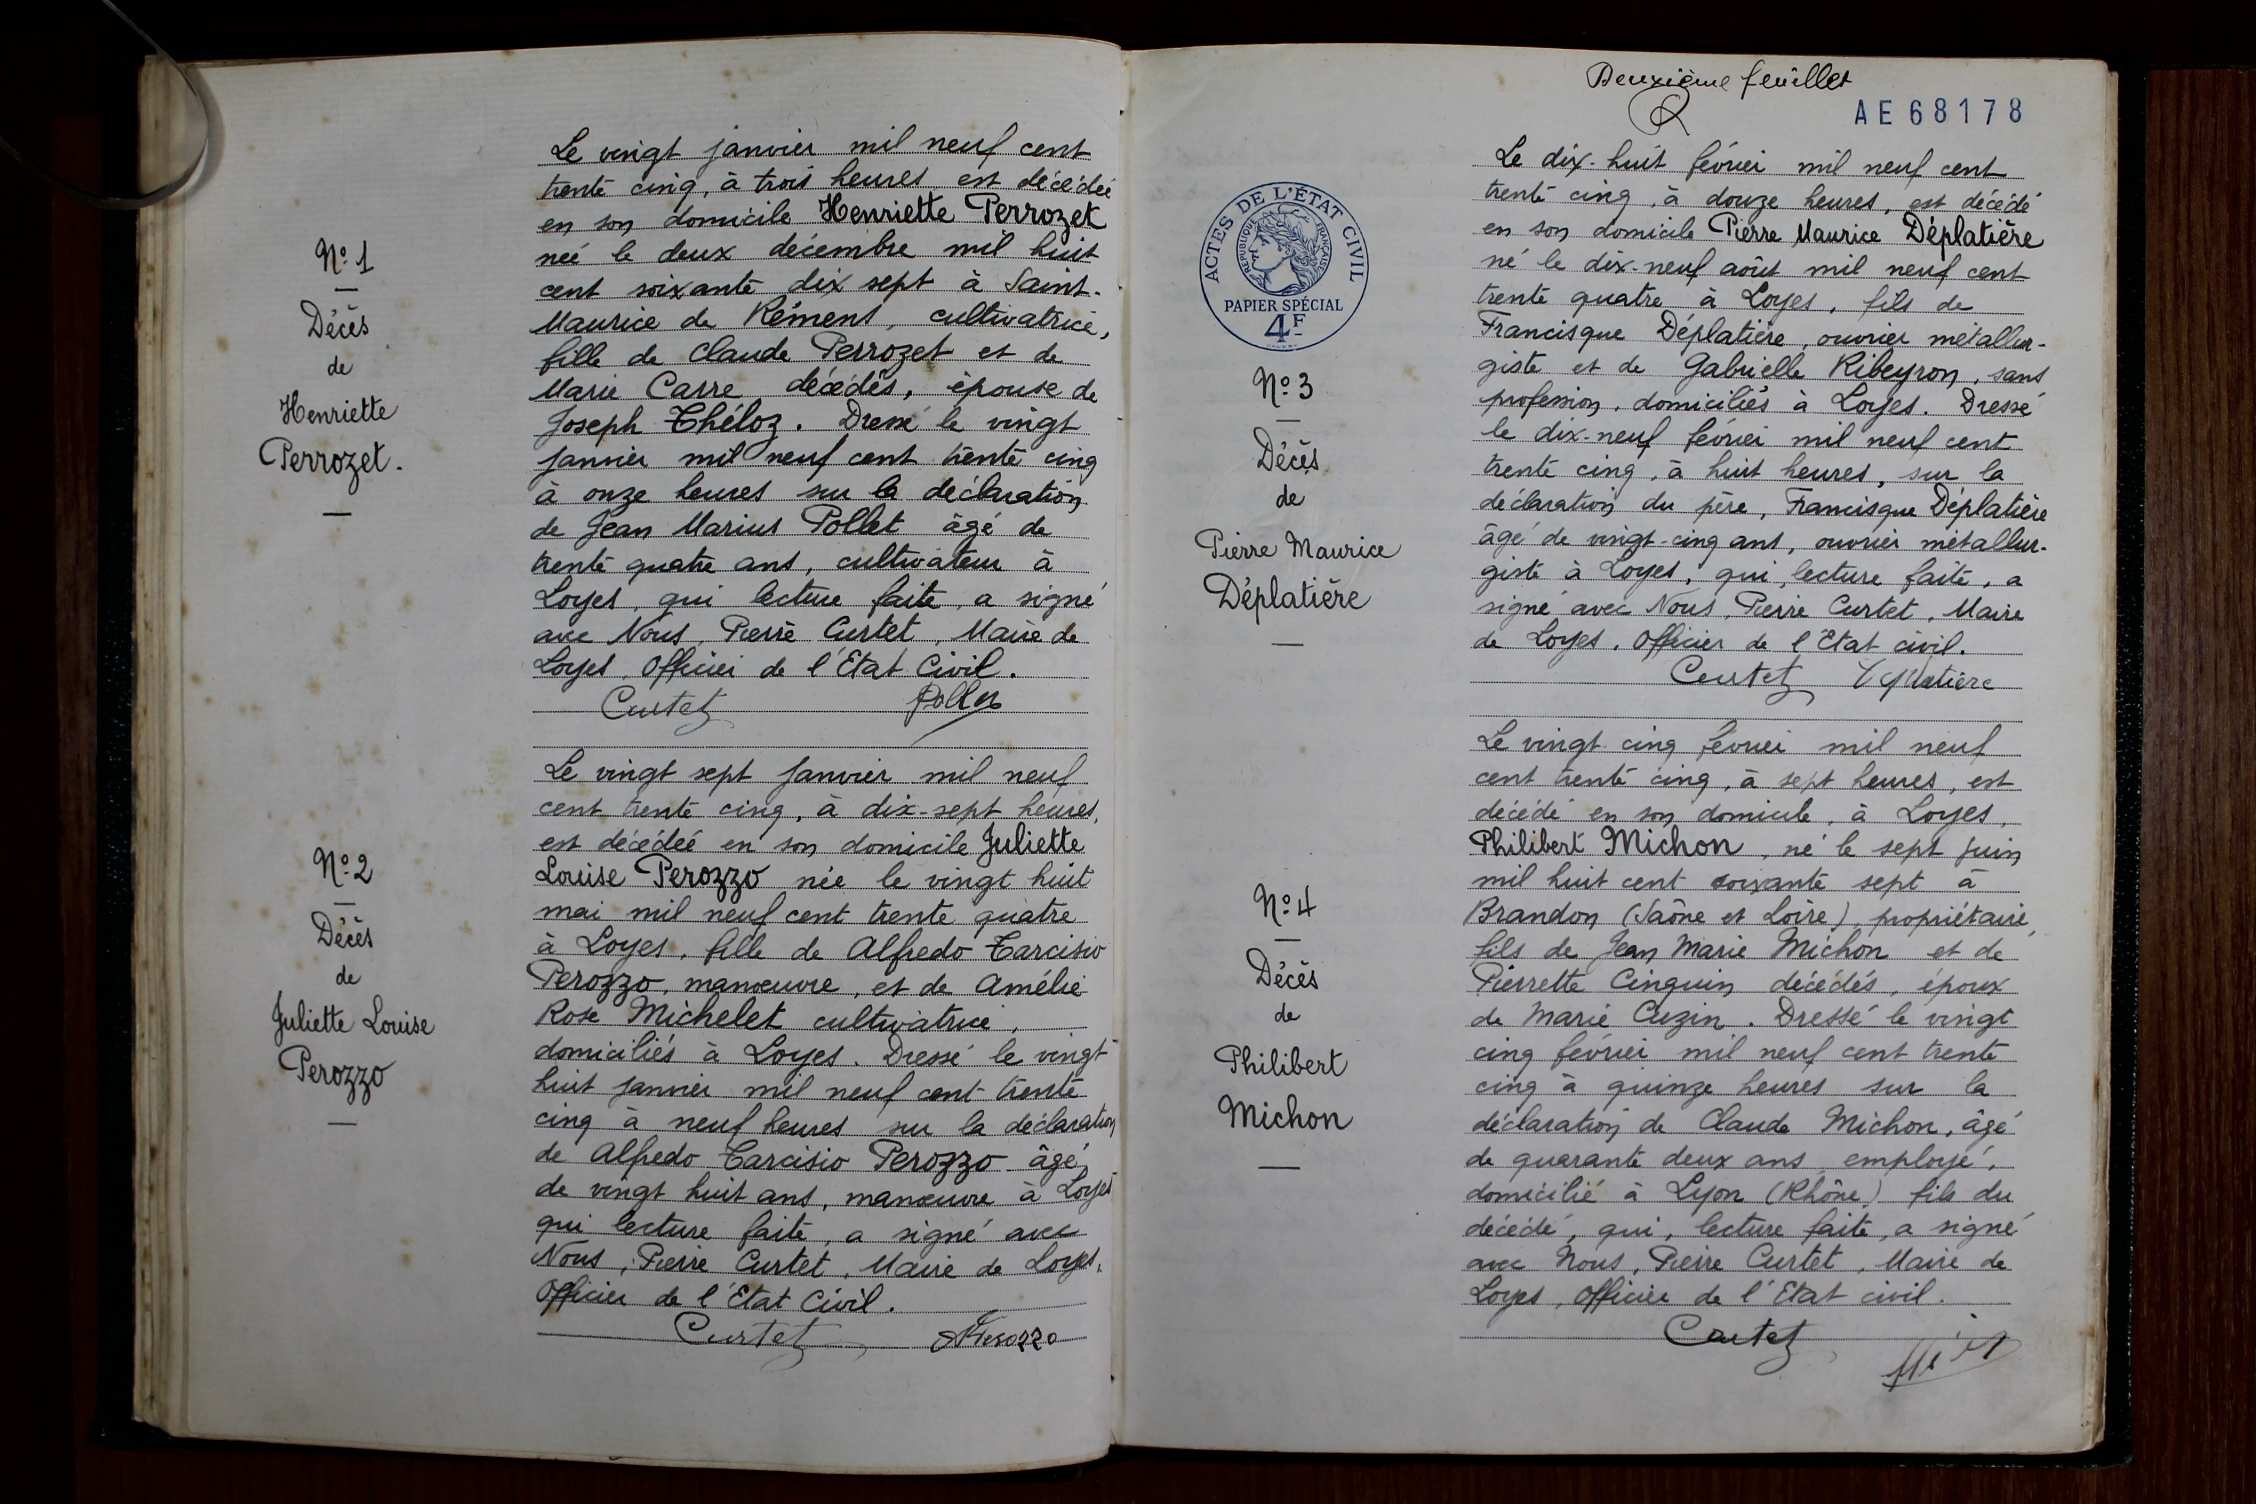 N° 1
Décès
de
Henriette
Perrozet.
Le vingt janvier mil neuf cent
trente cinq, à trois heures est décédée
en son domicile Henriette Perrozet
née le deux décembre mil huit
cent soixante dix sept à Saint-
Maurice de Rémens, cultivatrice,
fille de Claude Perrozet et de
Marie Carre décédés, épouse de
Joseph Théloz. Dressé le vingt
janvier mil neuf cent trente cinq
à onze heures sur la déclaration
de Jean Marius Pollet âgé de
trente quatre ans, cultivateur à
Loyes, qui lecture faite, a signé
avec Nous, Pierre Curtet, Maire de
Loyes, Officier de l'Etat Civil.
Curtet
N° 2
Décès
de
Juliette Louise
Perozzo
Le vingt sept janvier mil neuf
cent trente cinq, à dix-sept heures,
est décédée en son domicile Juliette
Louise Perozzo née le vingt huit
mai mil neuf cent trente quatre
à Loyes, fille de Alfredo Tarcisio
Perozzo, manœuvre, et de Amélie
Rose Michelet cultivatrice,
domiciliés à Loyes. Dressé le vingt
huit janvier mil neuf cent trente
cinq à neuf heures sur la déclaration
de Alfredo Tarcisio Perozzo âgé
de vingt huit ans, manœuvre à Loyes
qui lecture faite, a signé avec
Nous, Pierre Curtet, Maire de Loyes,
Officier de l'Etat Civil.
Curtet Perozzo
Deuxième feuillet
AE 68178
ACTES DE L'ÉTAT CIVIL
RÉPUBLIQUE FRANÇAISE
PAPIER SPÉCIAL
4F
N° 3
Décès
de
Pierre Maurice
Déplatière
Le dix-huit février mil neuf cent
trente cinq, à douze heures, est décédé
en son domicile Pierre Maurice Déplatière
né le dix-neuf août mil neuf cent
trente quatre à Loyes, fils de
Francisque Déplatière, ouvrier métallur-
giste et de Gabrielle Ribeyron, sans
profession, domiciliés à Loyes. Dressé
le dix-neuf février mil neuf cent
trente cinq, à huit heures, sur la
déclaration du père, Francisque Déplatière
âgé de vingt-cinq ans, ouvrier métallur-
giste à Loyes, qui, lecture faite, a
signé avec Nous, Pierre Curtet, Maire
de Loyes, Officier de l'Etat civil.
Curtet
N° 4
Décès
de
Philibert
Michon
Le vingt cinq février mil neuf
cent trente cinq, à sept heures, est
décédé en son domicile, à Loyes,
Philibert Michon, né le sept juin
mil huit cent soixante sept à
Brandon (Saône et Loire), propriétaire,
fils de Jean Marie Michon et de
Pierrette Cinquin décédés, époux
de Marie Cuzin. Dressé le vingt
cinq février mil neuf cent trente
cinq à quinze heures sur la
déclaration de Claude Michon, âgé
de quarante deux ans, employé,
domicilié à Lyon (Rhône) fils du
décédé, qui, lecture faite, a signé
avec Nous, Pierre Curtet, Maire de
Loyes, Officier de l'Etat civil.
Curtet